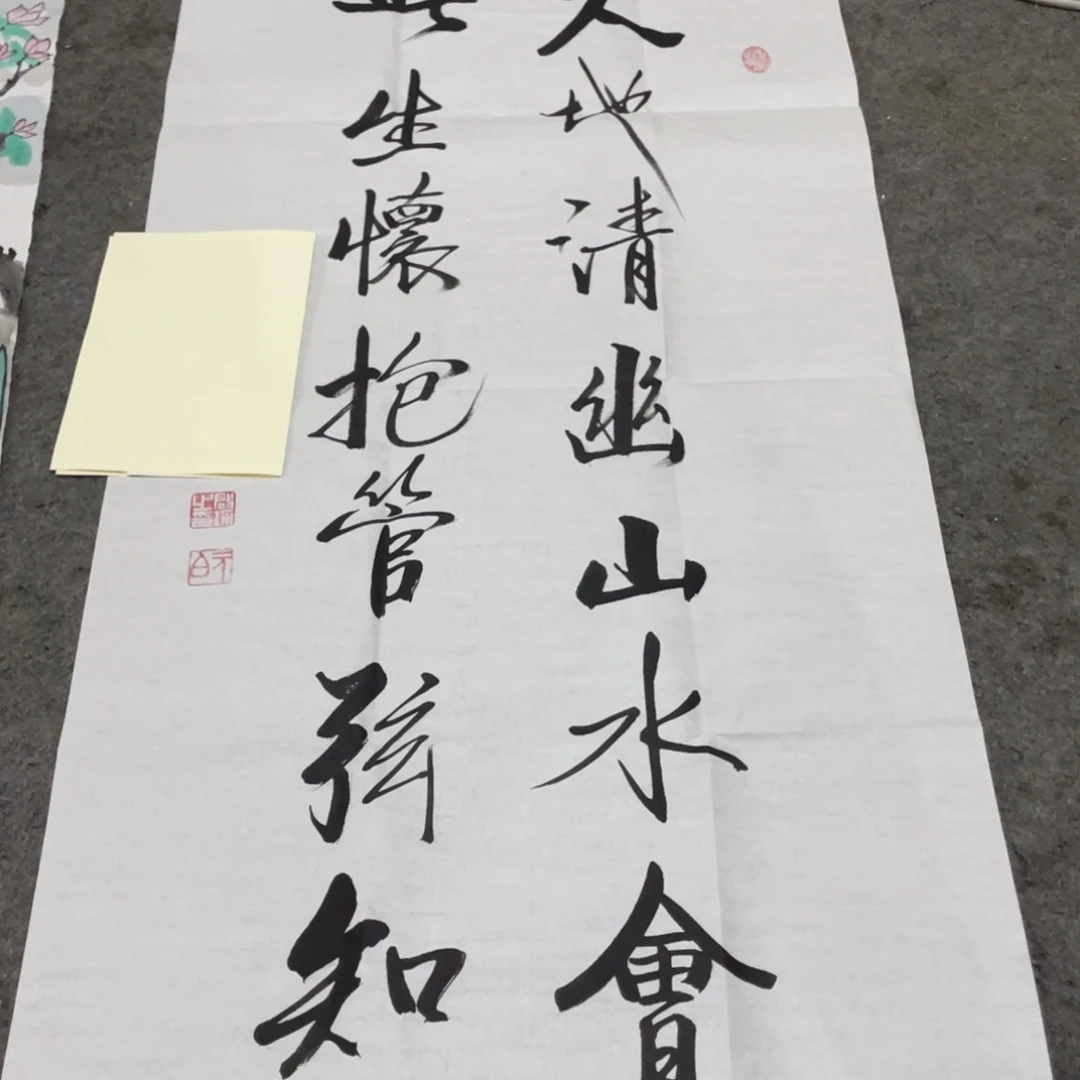 地清幽山水會
生懷抱管弦知